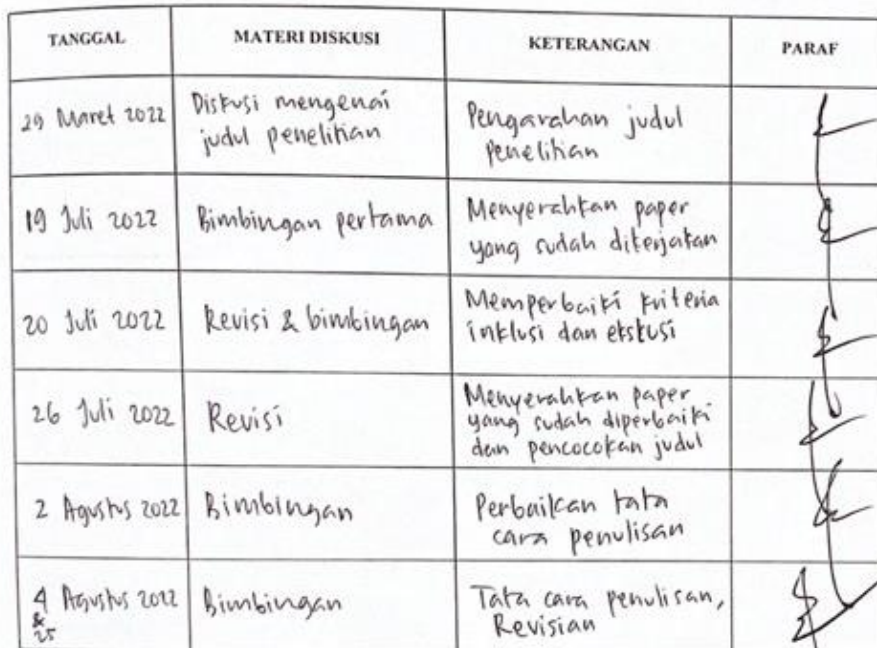 TANGGAL MATERI DISKUSI KETERANGAN PARAF
29 Maret 2022
Diskusi mengenai
judul penelitian
Pengarahan judul
penelitian
19 Juli 2022
Bimbingan pertama
Menyerahkan paper
yang sudah dikerjakan
20 Juli 2022
Revisi & bimbingan
Memperbaiki kriteria
inklusi dan ekslusi
26 Juli 2022
Revisi
Menyerahkan paper
yang sudah diperbaiki
dan pencocokan judul
2 Agustus 2022
Bimbingan
Perbaikan tata
cara penulisan
4 Agustus 2022
&
25
Bimbingan
Tata cara penulisan,
Revisian